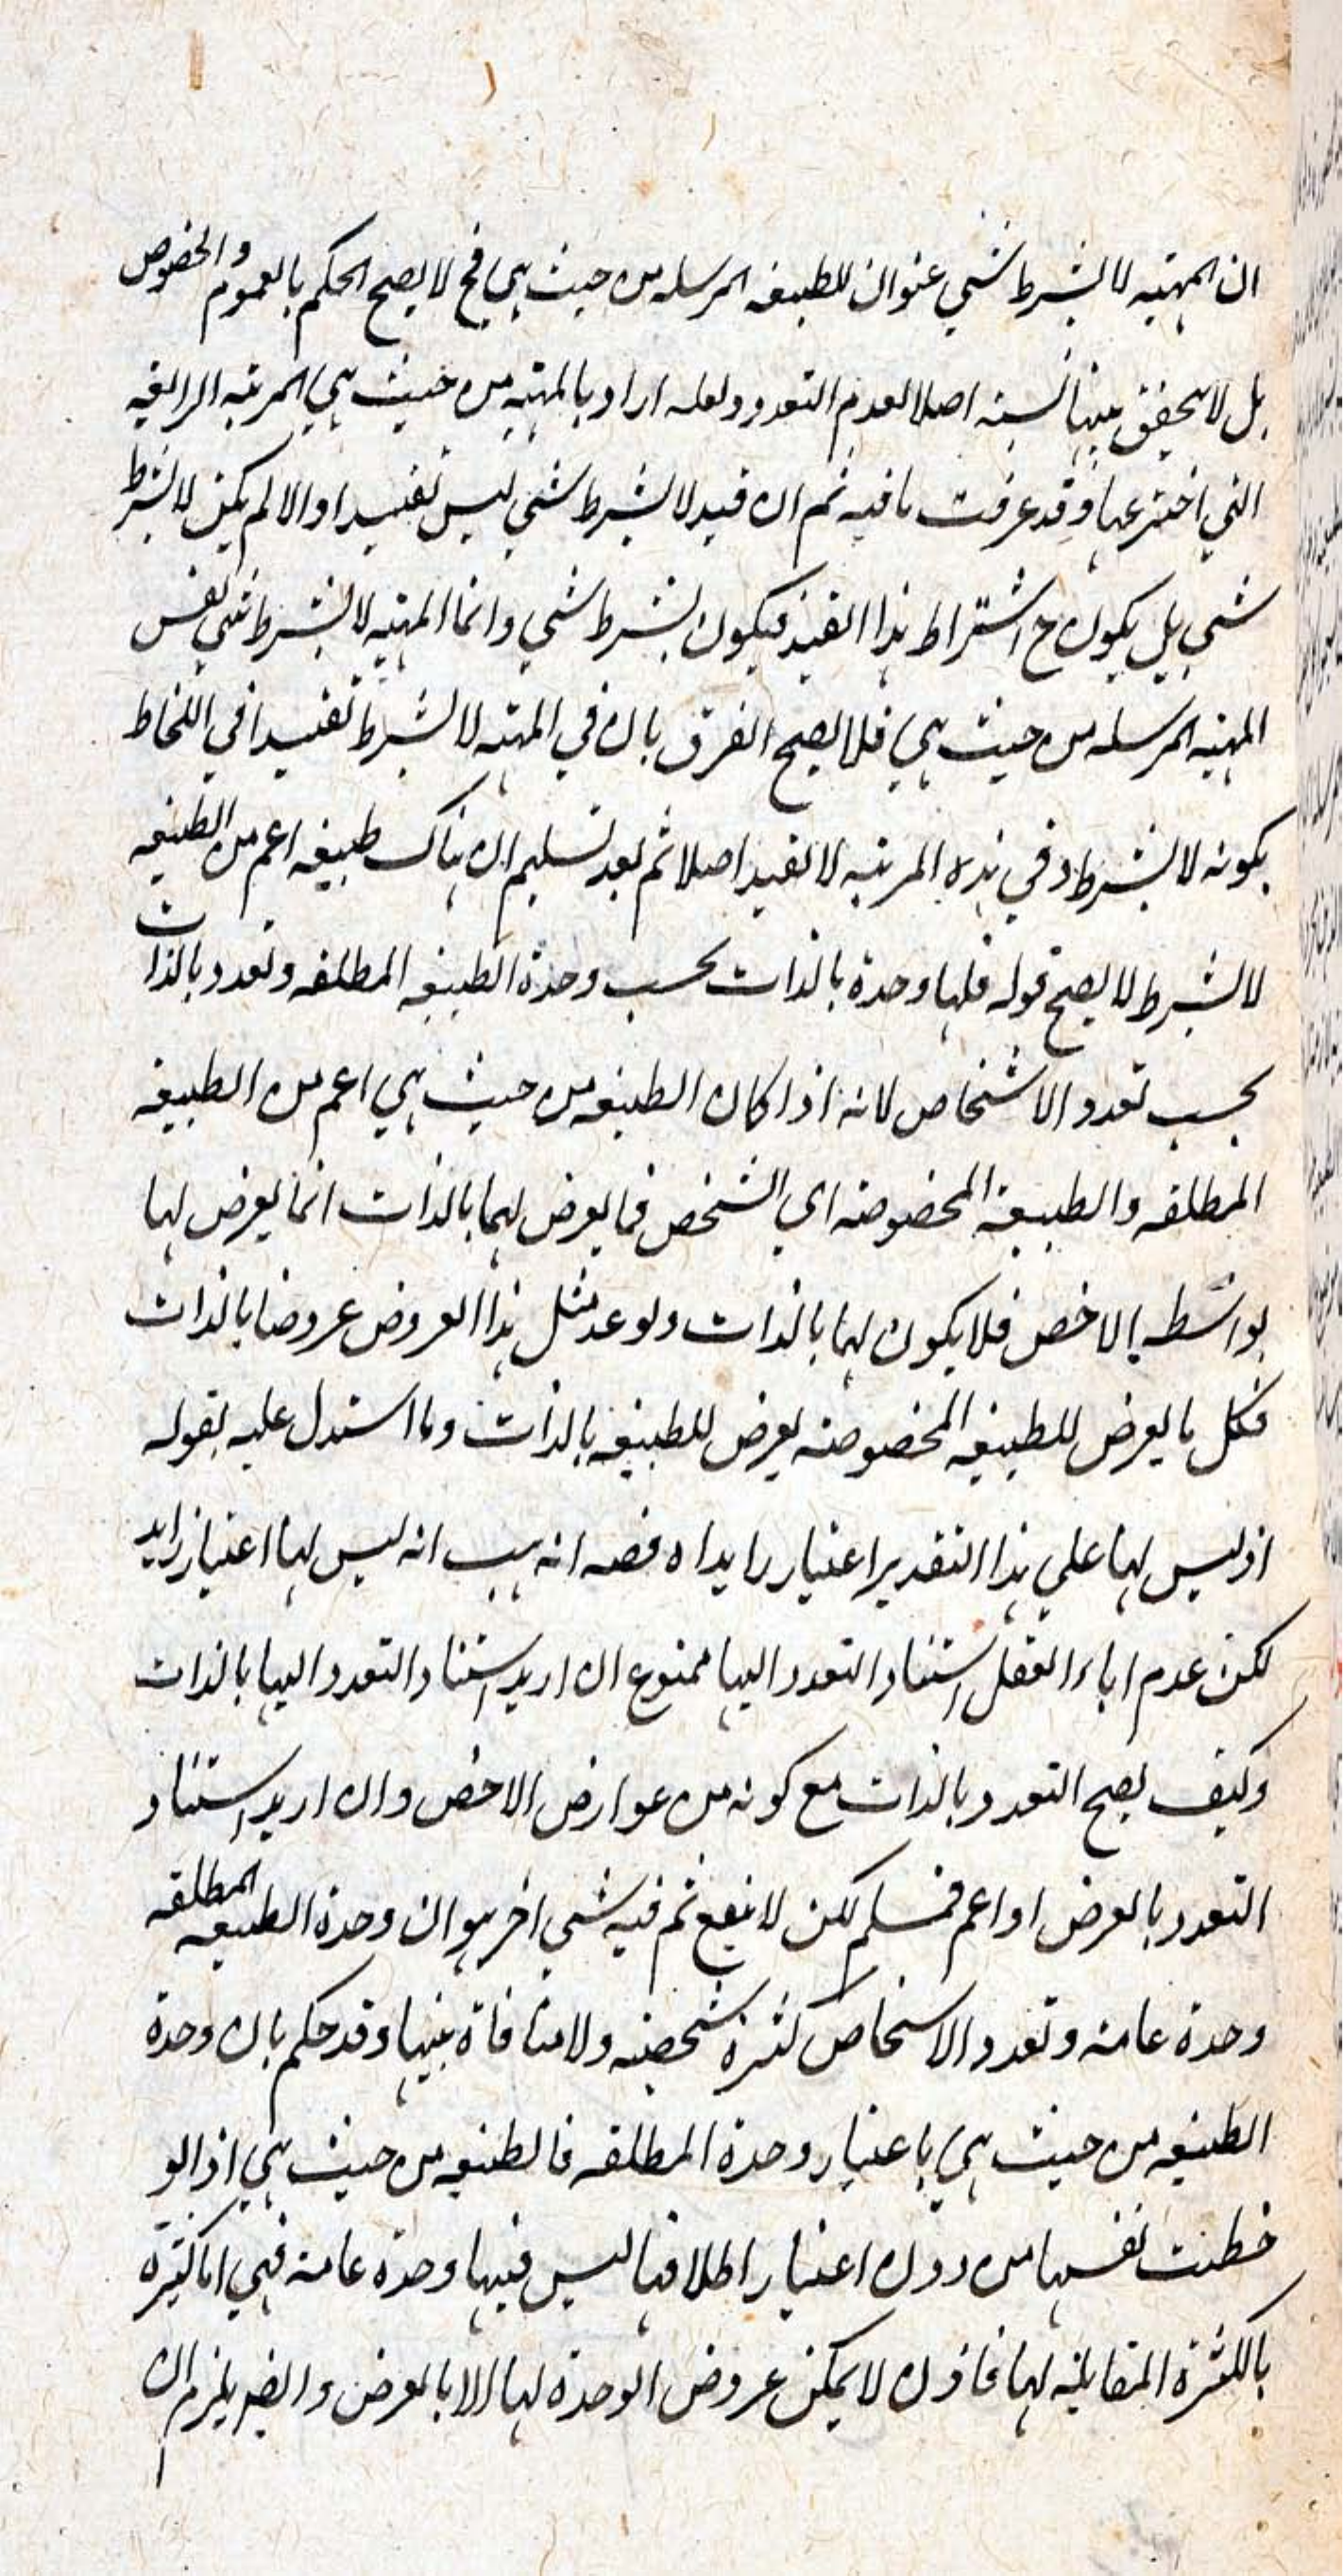 ان المهيه لا بشرط شي عنوان للطبيعه المرسله من حيث هي فح لا يصح الحكم بالعموم والخصوص
بل لا يتحقق بينهما نسبته اصلا لعدم التعدد ولعله اراد بالمهيه من حيث هي المرتبه الرابعه
التي اخترعها وقد عرفت ما فيه ثم ان قيد لا بشرط شي ليس تقييدا والا لم يكن لا بشرط
شي بل يكون ح اشتراط هذا القيد فيكون بشرط شي وانما المهيه لا بشرط شي نفس
المهيه المرسله من حيث هي فلا يصح الفرق بان في المهيه لا بشرط تقييدا في اللحاظ
بكونه لا بشرط وفي هذه المرتبه لا تقييد اصلا ثم بعد تسليم ان هناك طبيعه اعم من الطبيعه
لا بشرط لا يصح قوله فلها وحدة بالذات بحسب وحدة الطبيعه المطلقه وتعدد بالذات
بحسب تعدد الاشخاص لانه اذا كان الطبيعه من حيث هي اعم من الطبيعه
المطلقه والطبيعه المخصوصه اي الشخص فما يعرض لهما بالذات انما يعرض لها
بواسطه الاخص فلا يكون لها بالذات ولو عد مثل هذا العروض عروضا بالذات
فكل ما يعرض للطبيعه المخصوصه يعرض للطبيعه بالذات وما استدل عليه بقوله
اذ ليس لها علي هذا التقدير اعتبار زايد اه ففيه انه هب انه ليس لها اعتبار زايد
لكن عدم اباء العقل استناد التعدد اليها ممنوع ان اريد استناد التعدد اليها بالذات
وكيف يصح التعدد بالذات مع كونه من عوارض الاخص وان اريد استناد
التعدد بالعرض او اعم فمسلم لكن لا ينفع ثم فيه شي اخر هو ان وحدة الطبيعه المطلقه
وحدة عامه وتعدد الاشخاص كثرة شخصيه ولا منافاة بينها وقد حكم بان وحدة
الطبيعه من حيث هي باعتبار وحدة المطلقه فالطبيعه من حيث هي اذا لو
حظت نفسها من دون اعتبار اطلاقها ليس فيها وحدة عامه فهي اما كثيرة
بالكثرة المقابله لها فاذن لا يمكن عروض الوحدة لها الا بالعرض وايضا يلزم ان